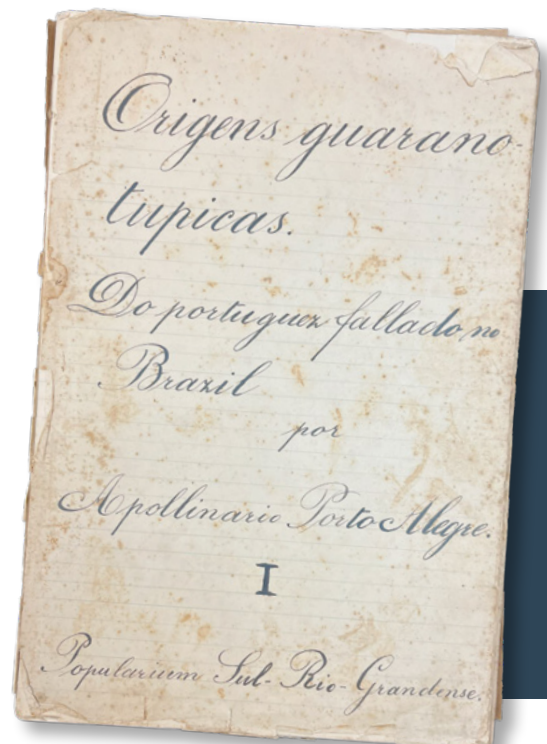 Origens guarano-
tupicas.
Do portuguez fallado no
Brazil
por
Apollinario Porto Alegre.
I
Popularium Sul-Rio-Grandense.